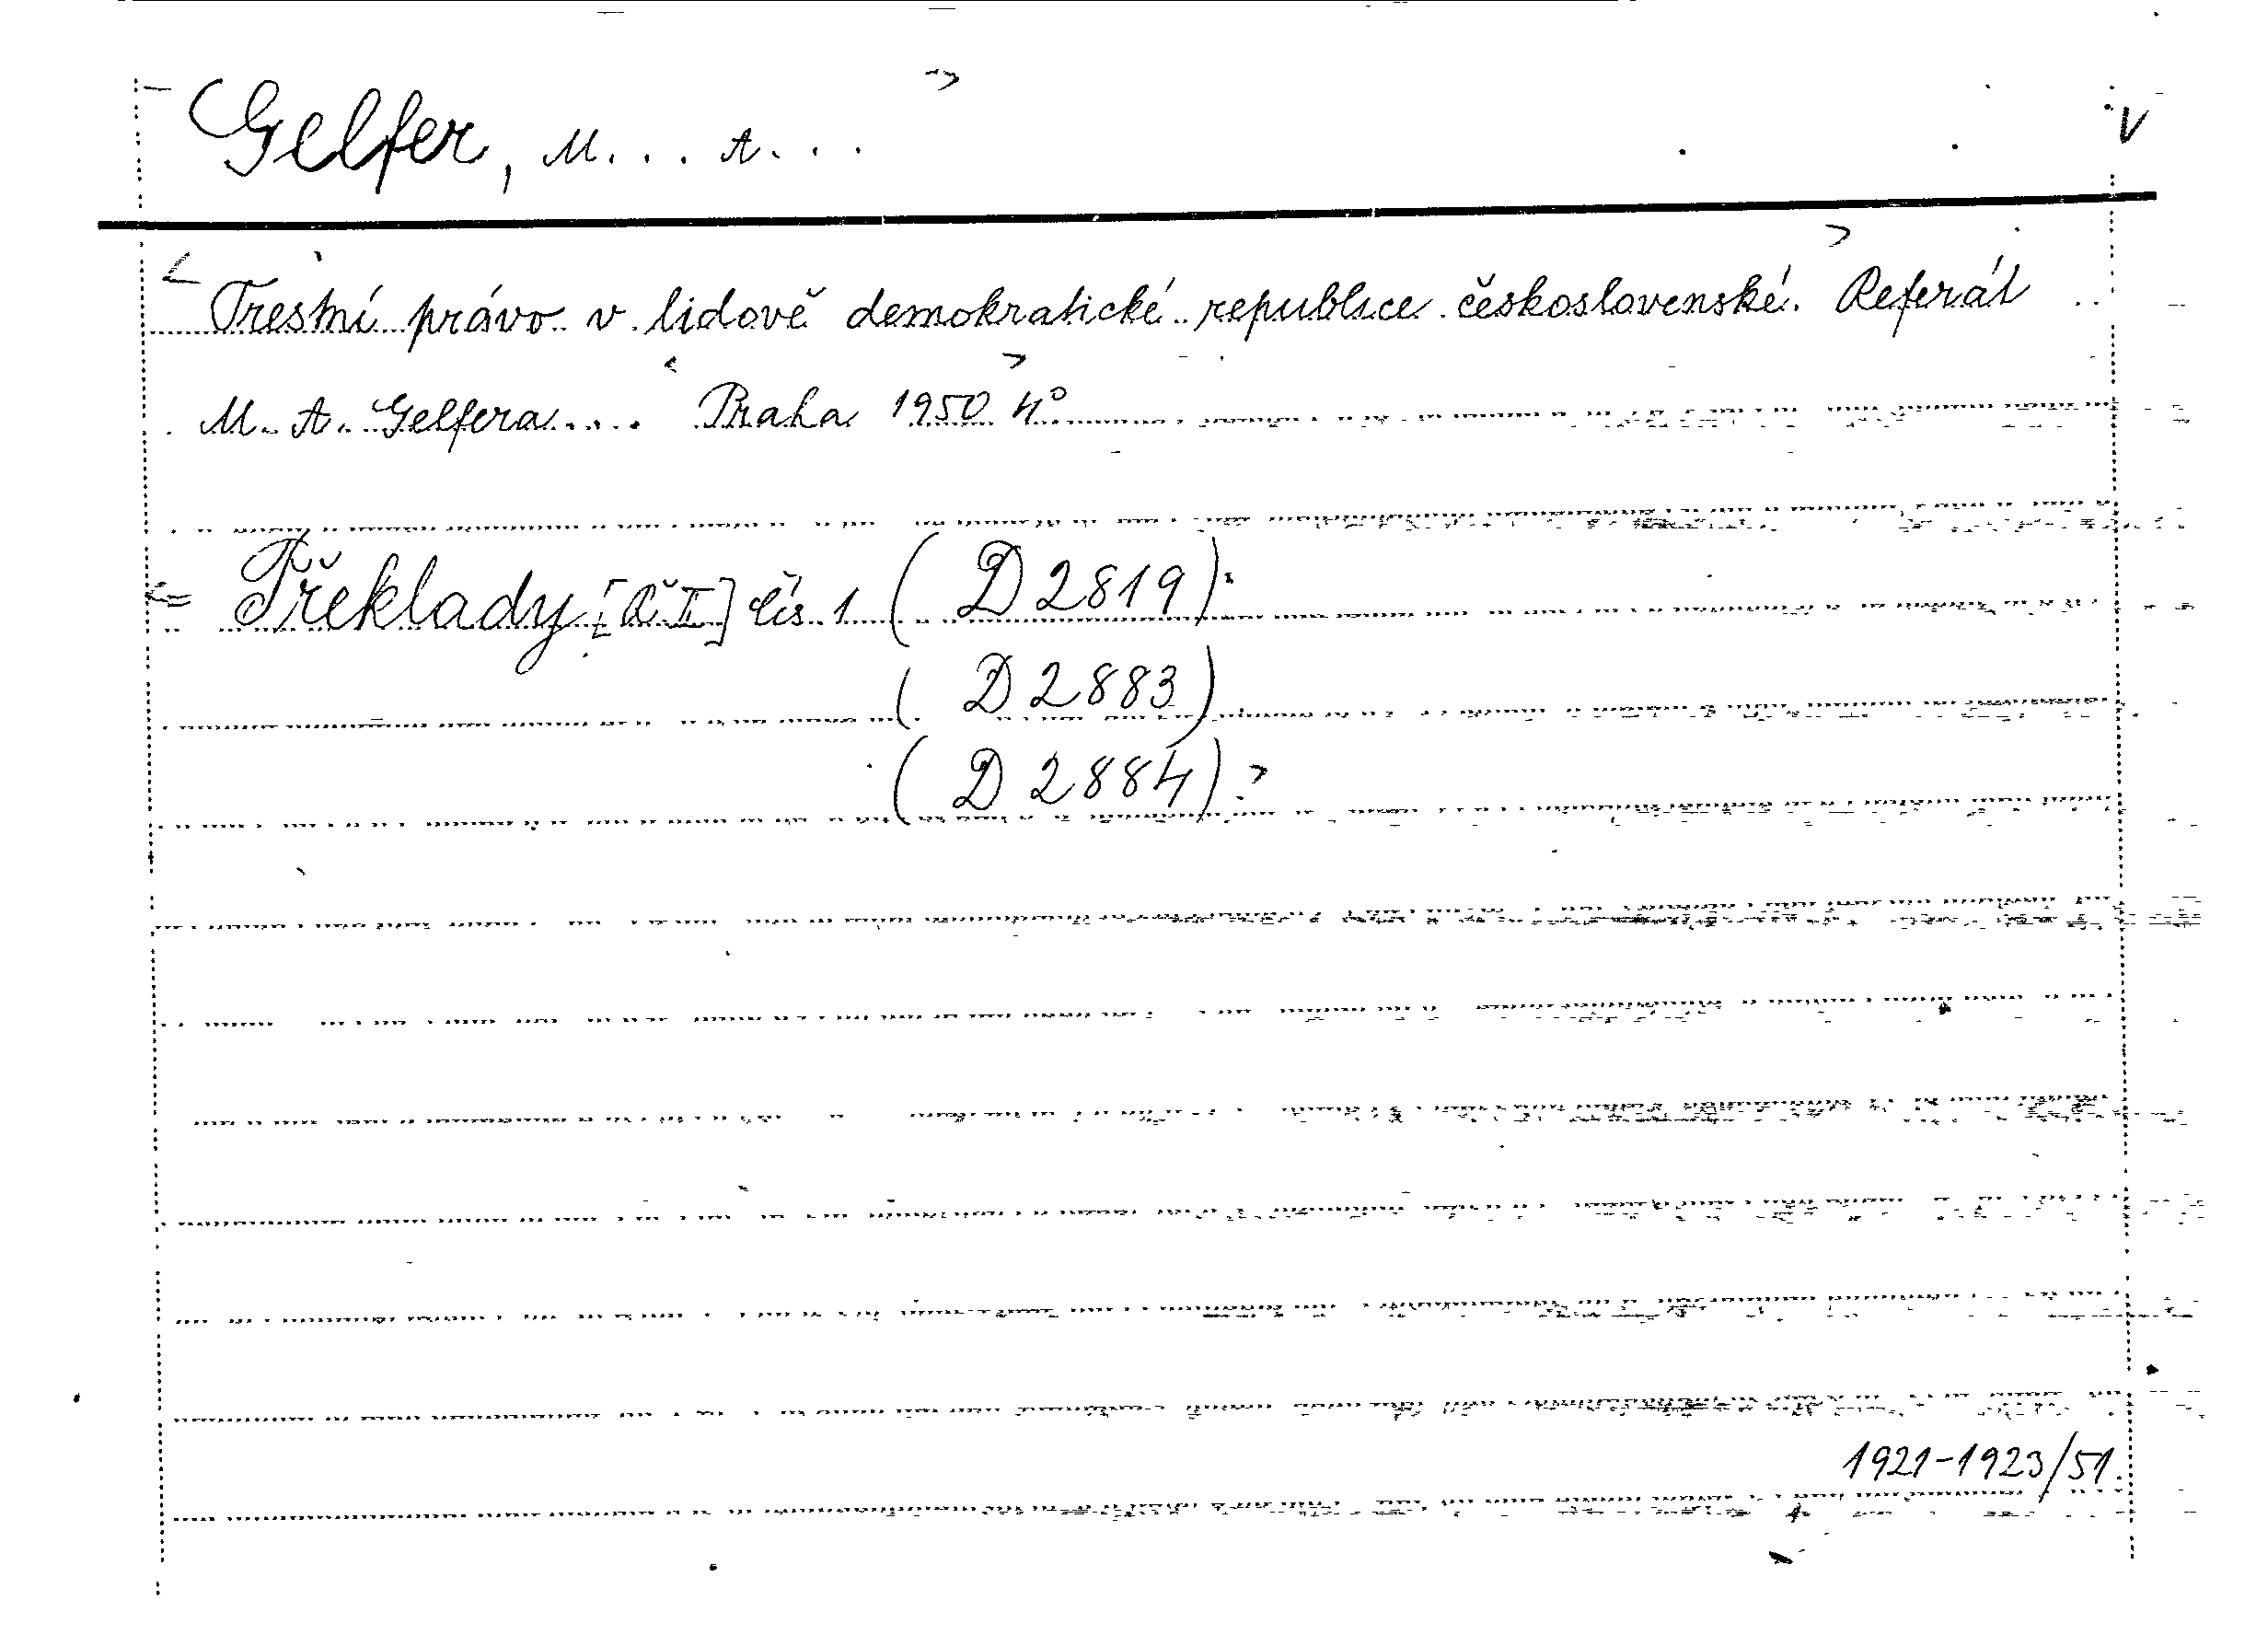 Gelfer, M... A... V
Trestní právo v lidově demokratické republice československé. Referát
M. A. Gelfera.... Praha 1950 4°
Překlady [ČI] čís. 1 (D 2819)
(D 2883)
(D 2884)
1921-1923/51.